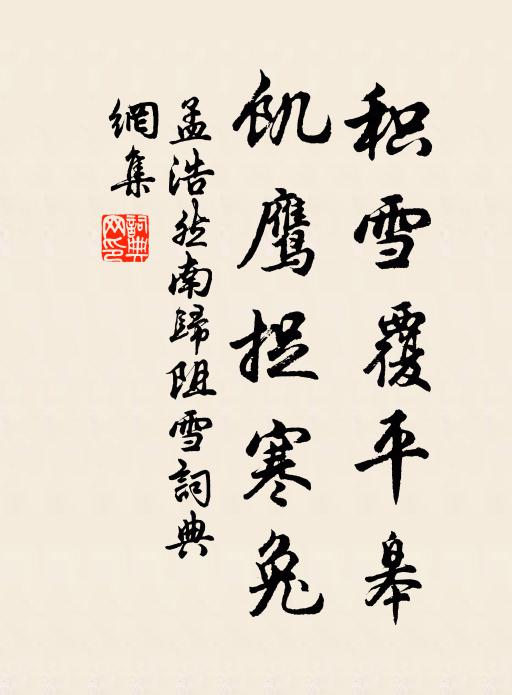 积雪覆平皋
飢鹰捉寒兔
孟浩然南歸阻雪詞典
網集
詞典網印